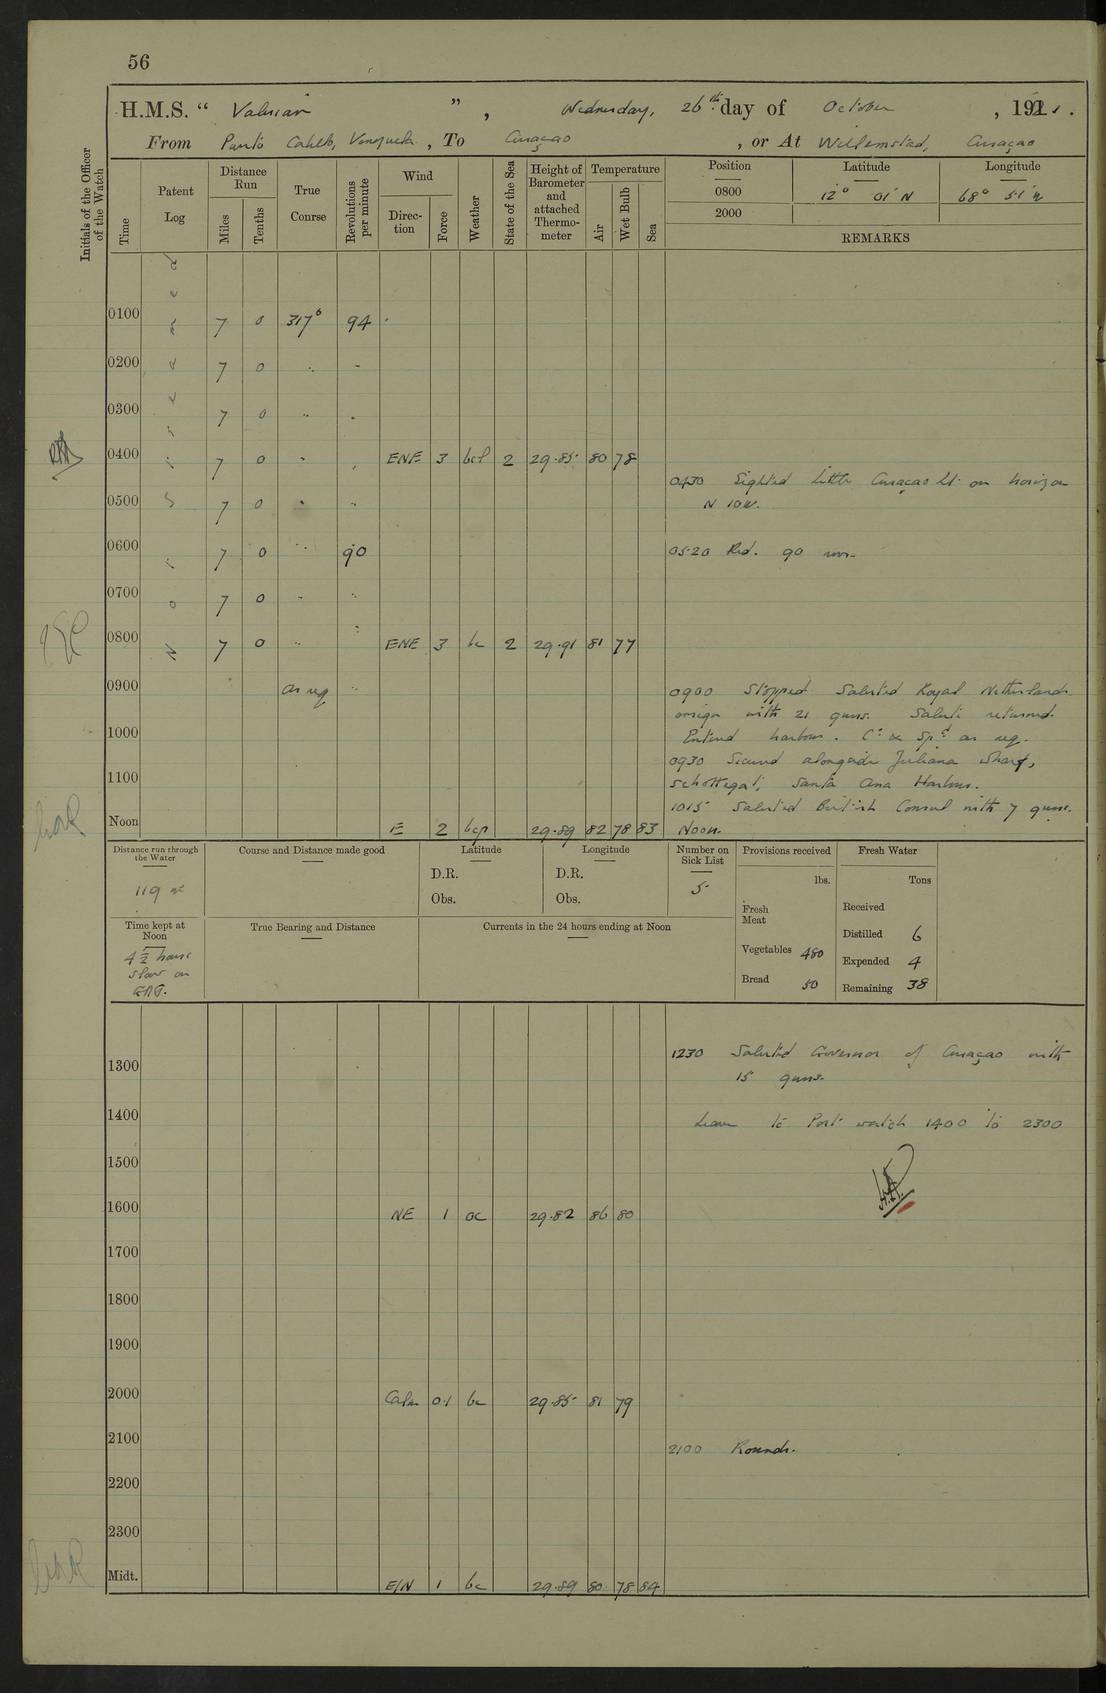 56
H.M.S. “ Valerian ” , Wednesday, 26th day of October , 1921.
From Puerto Cabello, Venezuela , To Curaçao , or At Willemstad, Curaçao
Initials of the Officer of the Watch
Time
Patent Log
Distance Run
Miles
Tenths
True Course
Revolutions per minute
Wind
Direction
Force
Weather
State of the Sea
Height of Barometer and attached Thermometer
Temperature
Air
Wet Bulb
Sea
Position Latitude Longitude
0800 12° 01' N 68° 51' W
2000
REMARKS
0100 7 0 317° 94
0200 7 0 " "
0300 7 0 " "
0400 7 0 " " ENE 3 2 29.85 80 78
0430 Sighted Little Curaçao Lt. on horizon
N 10 W.
0500 7 0 " "
0600 7 0 " 90
0520 Red. 90 revs.
0700 7 0 " "
0800 7 0 " " ENE 3 bc 2 29.91 81 77
0900 as req "
0900 Stopped Saluted Royal Netherlands
ensign with 21 guns. Salute returned.
1000
Entered harbour. Co. & Spd. as req.
0930 Secured alongside Juliana Wharf,
1100
Schottegat, Santa Ana Harbour.
1015 Saluted British Consul with 7 guns.
Noon E 2 bcp 29.89 82 78 83 Noon.
Distance run through the Water
119
Course and Distance made good
Latitude
D.R.
Obs.
Longitude
D.R.
Obs.
Number on Sick List
5
Provisions received
lbs.
Fresh Meat
Vegetables 480
Bread 50
Fresh Water
Tons
Received
Distilled 6
Expended 4
Remaining 38
Time kept at Noon
4½ hours
slow on
GMT.
True Bearing and Distance
Currents in the 24 hours ending at Noon
1230 Saluted Governor of Curaçao with
15 guns.
1300
1400
Leave to Port watch 1400 to 2300
1500
1600 NE 1 oc 29.82 86 80
1700
1800
1900
2000 Calm 0.1 bc 29.85 81 79
2100
2100 Rounds.
2200
2300
Midt. E/N 1 bc 29.89 80 78 84